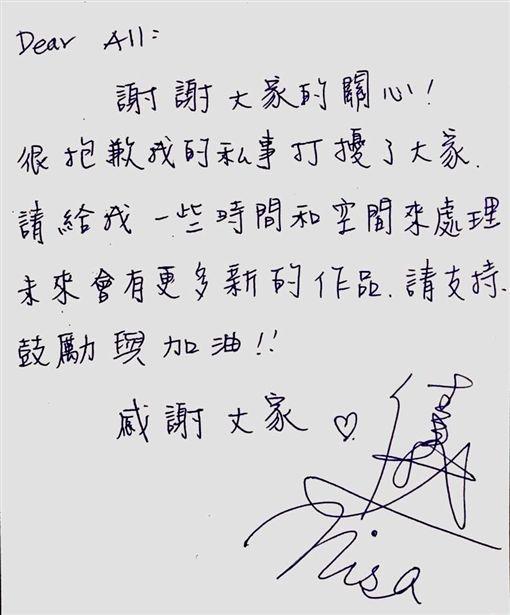 Dear All:
謝謝大家的關心!
很抱歉我的私事打擾了大家.
請給我一些時間和空間來處理
未來會有更多新的作品.請支持.
鼓勵與加油!!
感謝大家♡
Nisa